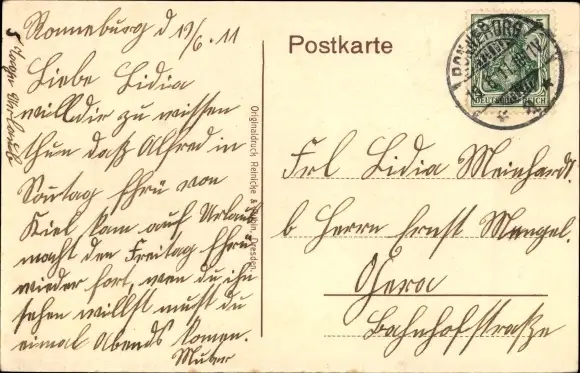 Ronneburg d 19/6. 11
Liebe Lidia
will dir zu wissen
thun daß Alfred in
Sontag früh von
Kiel kam auf Urlaub
macht den Freitag früh
wieder fort, wen du ihn
sehen willst must du
einmal Abends komen.
Mutter
5 Tage Urlaub
Originaldruck Reinicke & Rubin, Dresden.
Postkarte
RONNEBURG
DEUTSCHES REICH
5
Frl Lidia Meinhardt.
b Herrn Ernst Mengel.
Gera
Bahnhofstraße